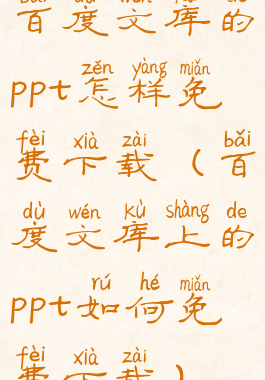 bǎi dù wén kù de
百度文库的
zěn yàng miǎn
ppt怎样免
fèi xià zài bǎi
费下载（百
dù wén kù shàng de
度文库上的
rú hé miǎn
ppt如何免
fèi xià zài
费下载）